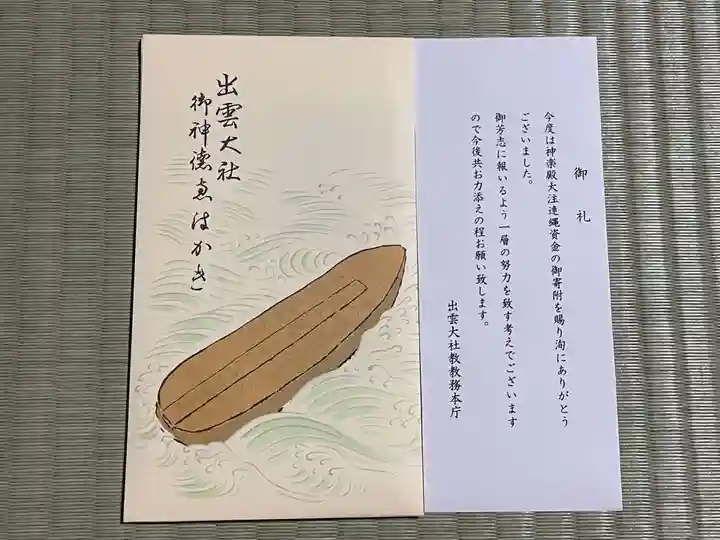 御礼
今度は神楽殿大注連縄資金の御寄附を賜り洵にありがとう
ございました。
御芳志に報いるよう一層の努力を致す考えでございます
ので今後共お力添えの程お願い致します。
出雲大社教教務本庁
出雲大社
御神徳ゑはがき